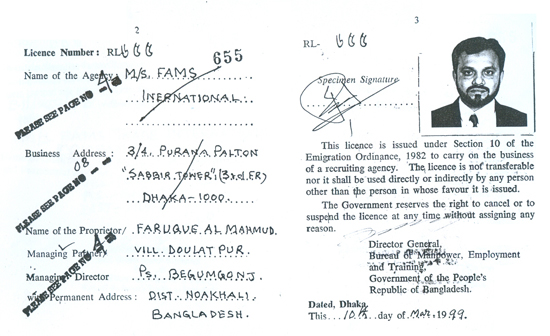 2
Licence Number: RL 666
655
Name of the Agency: M/S. FAMS
INERNATIONAL
PLEASE SEE PAGE NO
Business Address: 3/4. PURANA PALTON
08
"SABBIR TOWER" (3rd FR)
DHAKA-1000.
PLEASE SEE PAGE NO
Name of the Proprietor/ FARUQUE AL MAHMUD.
Managing Partner/ VILL. DOULATPUR.
Managing Director PS. BEGUMGONJ.
with Permanent Address: DIST. NOAKHALI.
BANGLADESH.
PLEASE SEE PAGE NO
3
RL- 666
Specimen Signature
This licence is issued under Section 10 of the
Emigration Ordinance, 1982 to carry on the business
of a recruiting agency. The licence is not transferable
nor it shall be used directly or indirectly by any person
other than the person in whose favour it is issued.
The Government reserves the right to cancel or to
suspend the licence at any time without assigning any
reason.
Director General,
Bureau of Manpower, Employment
and Training,
Government of the People's
Republic of Bangladesh.
Dated, Dhaka.
This 10th day of Mar. 1999.